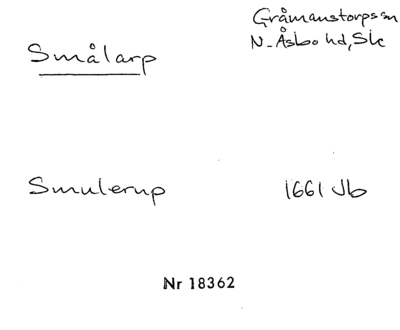 Smålarp
Gråmanstorps sn
N. Åsbo hd, Sk
Smulerup
1661 Jb
Nr 18362